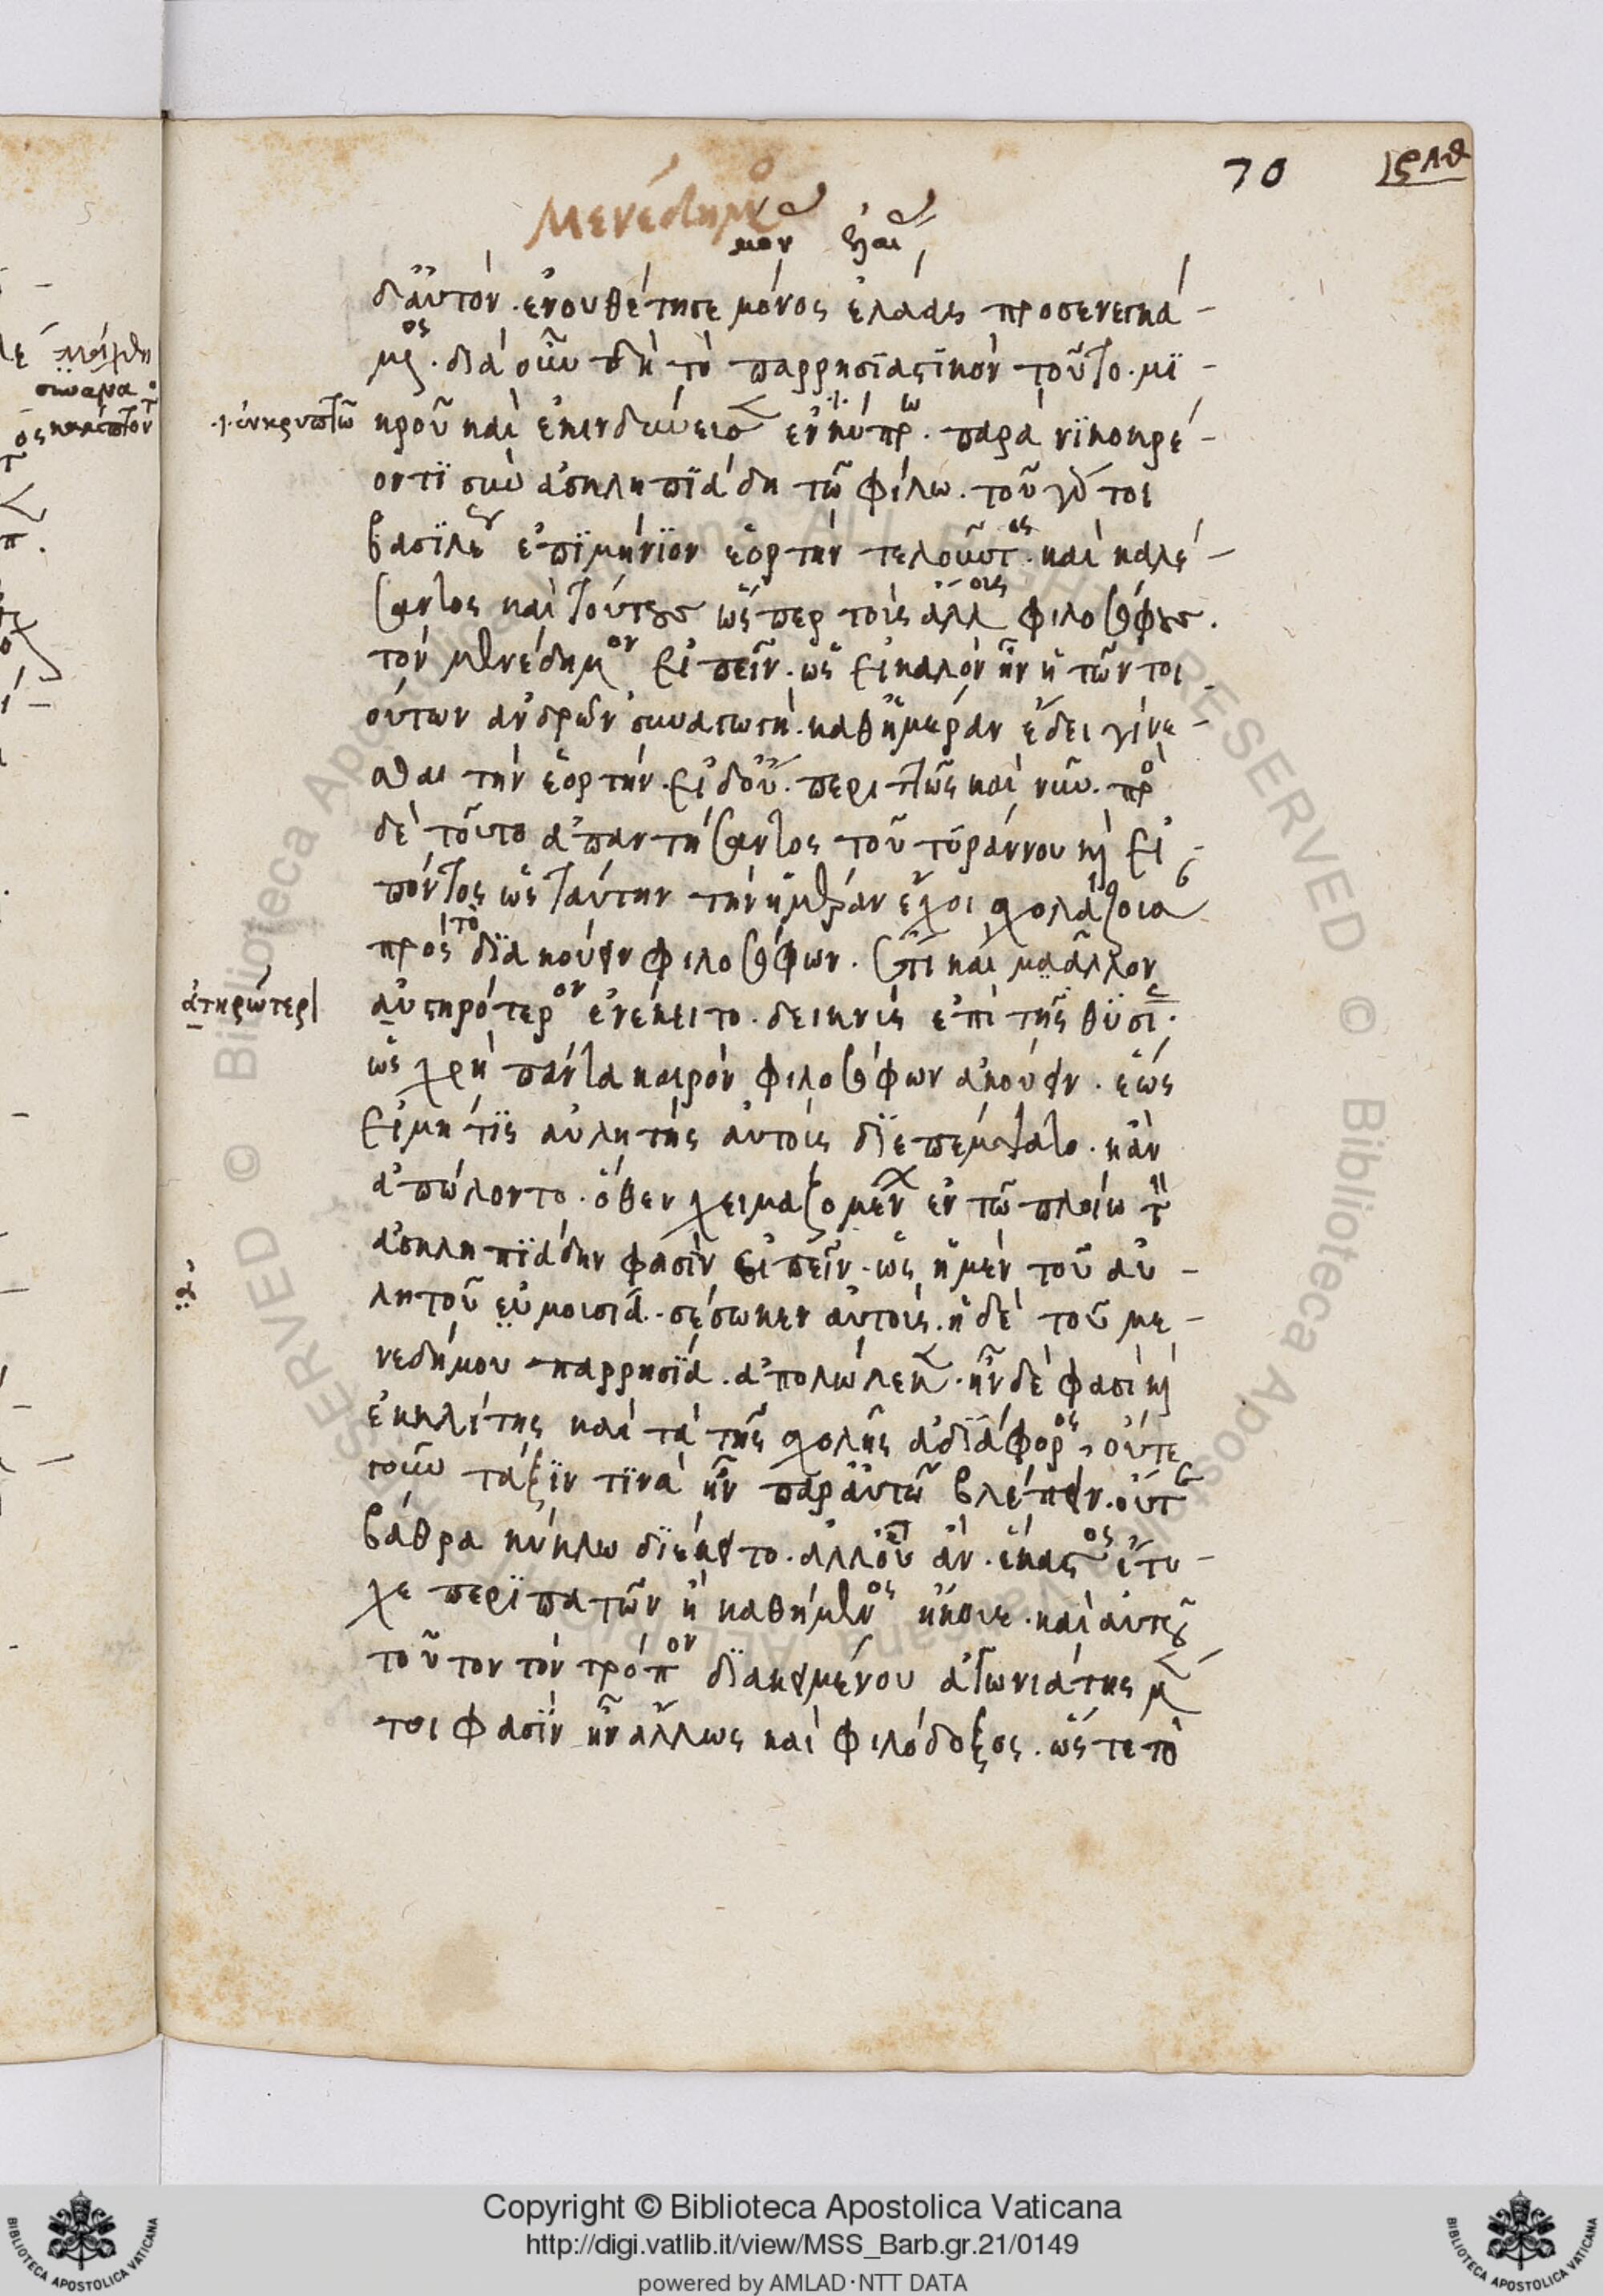 70
Μενέδημος
δ' αὐτὸν. ἐνουθέτησε μόνος ἐλάας προσενεγκά-
μενος. διὰ οὖν δὴ τὸ παρρησϊαστϊκὸν τοῦτο. μϊ-
κροῦ καὶ ἐκινδύνευσεν ἐν κύπρω. παρὰ νϊκοκρέ-
οντϊ σὺν ἀσκληπϊάδη τῶ φίλω. τοῦ γάρ τοι
βασϊλέως ἐπϊμήνϊον ἑορτὴν τελοῦντος. καὶ καλέ-
σαντος καὶ τούτους ὥσπερ τοὺς ἄλλους φιλοσόφους.
τὸν μενέδημον εἰπεῖν. ὡς εἰ καλὸν ἦν ἡ τῶν τοι
ούτων ἀνδρῶν συναγωγὴ. καθ' ἡμέραν ἔδει γίνε-
σθαι τὴν ἑορτήν. εἰ δ' οὔ. περιττῶς καὶ νῦν. πρὸς
δὲ τοῦτο ἀπαντήσαντος τοῦ τϋράννου καὶ εἰ-
πόντος ὡς ταύτην τὴν ἡμέραν ἔχοι σχολάζουσαν
πρὸς τὸ δϊακούειν φιλοσόφων. ἔτι καὶ μᾶλλον
αὐστηρότερον ἐνέκειτο. δεικνὺς ἐπὶ τῆς θϋσίας.
ὡς χρὴ πάντα καιρὸν φιλοσόφων ἀκούειν. ἕως
εἰ μή τϊς αὐλητὴς αὐτοὺς δϊεπέμψατο. κἂν
ἀπώλοντο. ὅθεν χειμαζομένων ἐν τῶ πλοίω τὸν
ἀσκληπϊάδην φασὶν εἰπεῖν. ὡς ἡ μὲν τοῦ αὐ-
λητοῦ εὐμουσία. σέσωκεν αὐτούς. ἡ δὲ τοῦ με-
νεδήμου παρρησϊά. ἀπολώλεκεν. ἦν δὲ φασὶ καὶ
ἐκκλίτης καὶ τὰ τῆς σχολῆς ἀδϊάφορος, οὔτε
γοῦν τάξϊν τϊνὰ ἦν παρ' αὐτῶ βλέπειν. οὔτε
βάθρα κύκλω δϊέκειτο. ἀλλ' οὗ ἂν. ἕκαστος ἔτυ-
χε περϊπατῶν ἢ καθήμενος ἤκουε. καὶ αὐτοῦ
τοῦτον τὸν τρόπον δϊακειμένου ἀγωνιάτης μέν
τοι φασὶν ἦν ἄλλως καὶ φιλόδοξος. ὥστε τὸ
Copyright © Biblioteca Apostolica Vaticana
http://digi.vatlib.it/view/MSS_Barb.gr.21/0149
powered by AMLAD·NTT DATA